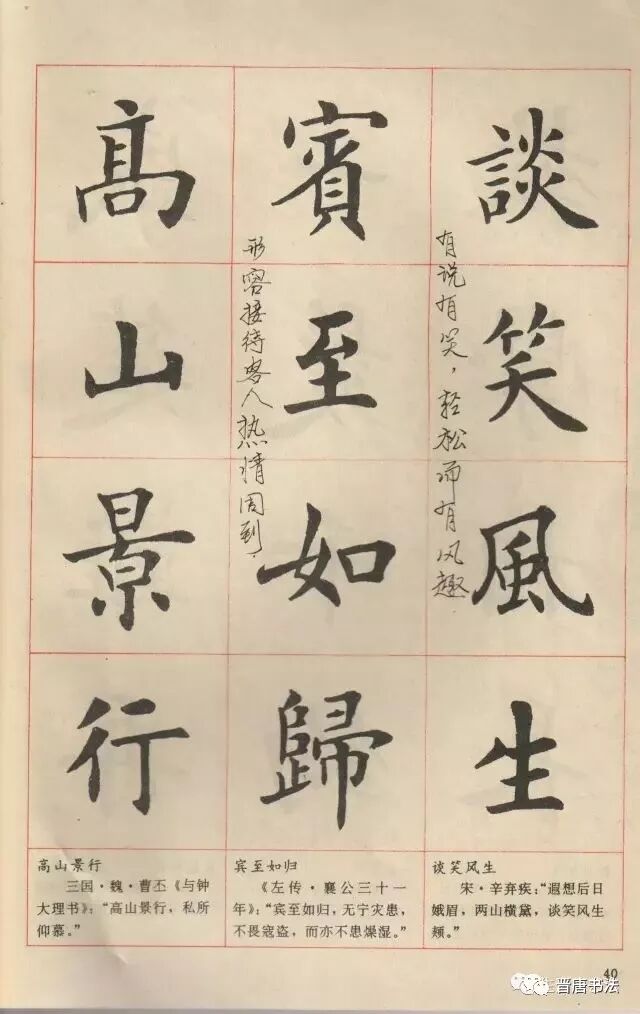 談笑風生
有说有笑，轻松而有风趣
賓至如歸
形容接待客人热情周到.
高山景行
高山景行
三国·魏·曹丕《与钟
大理书》：“高山景行，私所
仰慕。”
宾至如归
《左传·襄公三十一
年》：“宾至如归，无宁灾患，
不畏寇盗，而亦不患燥湿。”
谈笑风生
宋·辛弃疾：“遐想后日
娥眉，两山横黛，谈笑风生
颊。”
40
晋唐书法